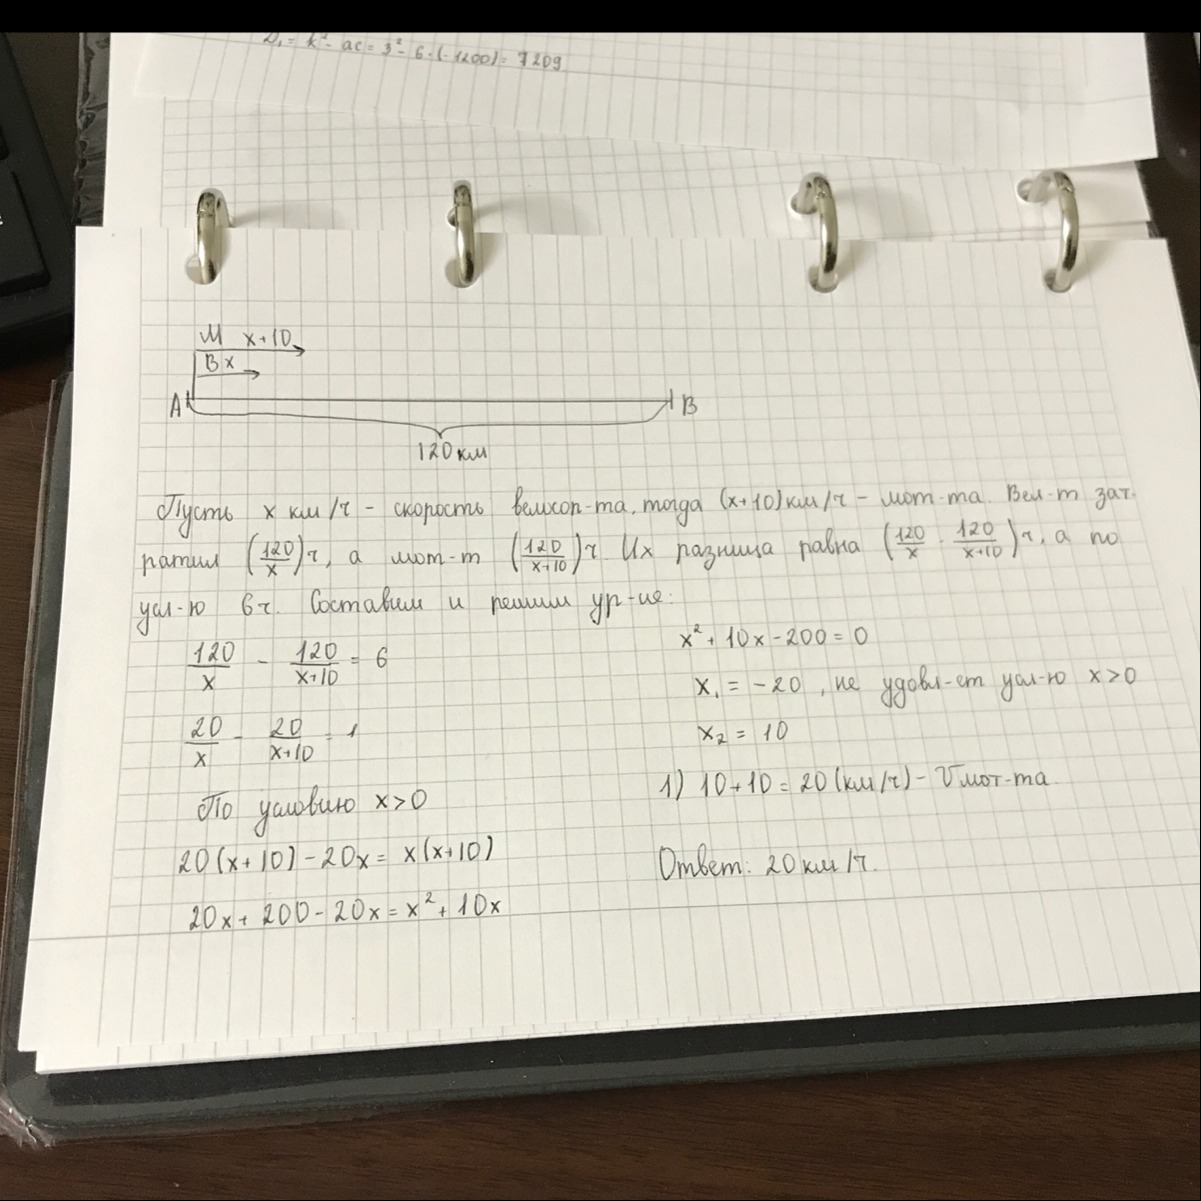 D₁ = k² - ac = 3² - 6·(-1200) = 7209
М x+10
В x
А В
120 км
Пусть x км/ч - скорость велисоп-та, тогда (x+10) км/ч - мот-та. Вел-т зат-
ратил (120/x) ч, а мот-т (120/(x+10)) ч. Их разница равна (120/x - 120/(x+10)) ч, а по
усл-ю 6 ч. Составим и решим ур-ие:
120/x - 120/(x+10) = 6
20/x - 20/(x+10) = 1
По условию x>0
20(x+10) - 20x = x(x+10)
20x + 200 - 20x = x² + 10x
x² + 10x - 200 = 0
x₁ = -20, не удовл-ет усл-ю x>0
x₂ = 10
1) 10+10 = 20 (км/ч) - V мот-та.
Ответ: 20 км/ч.